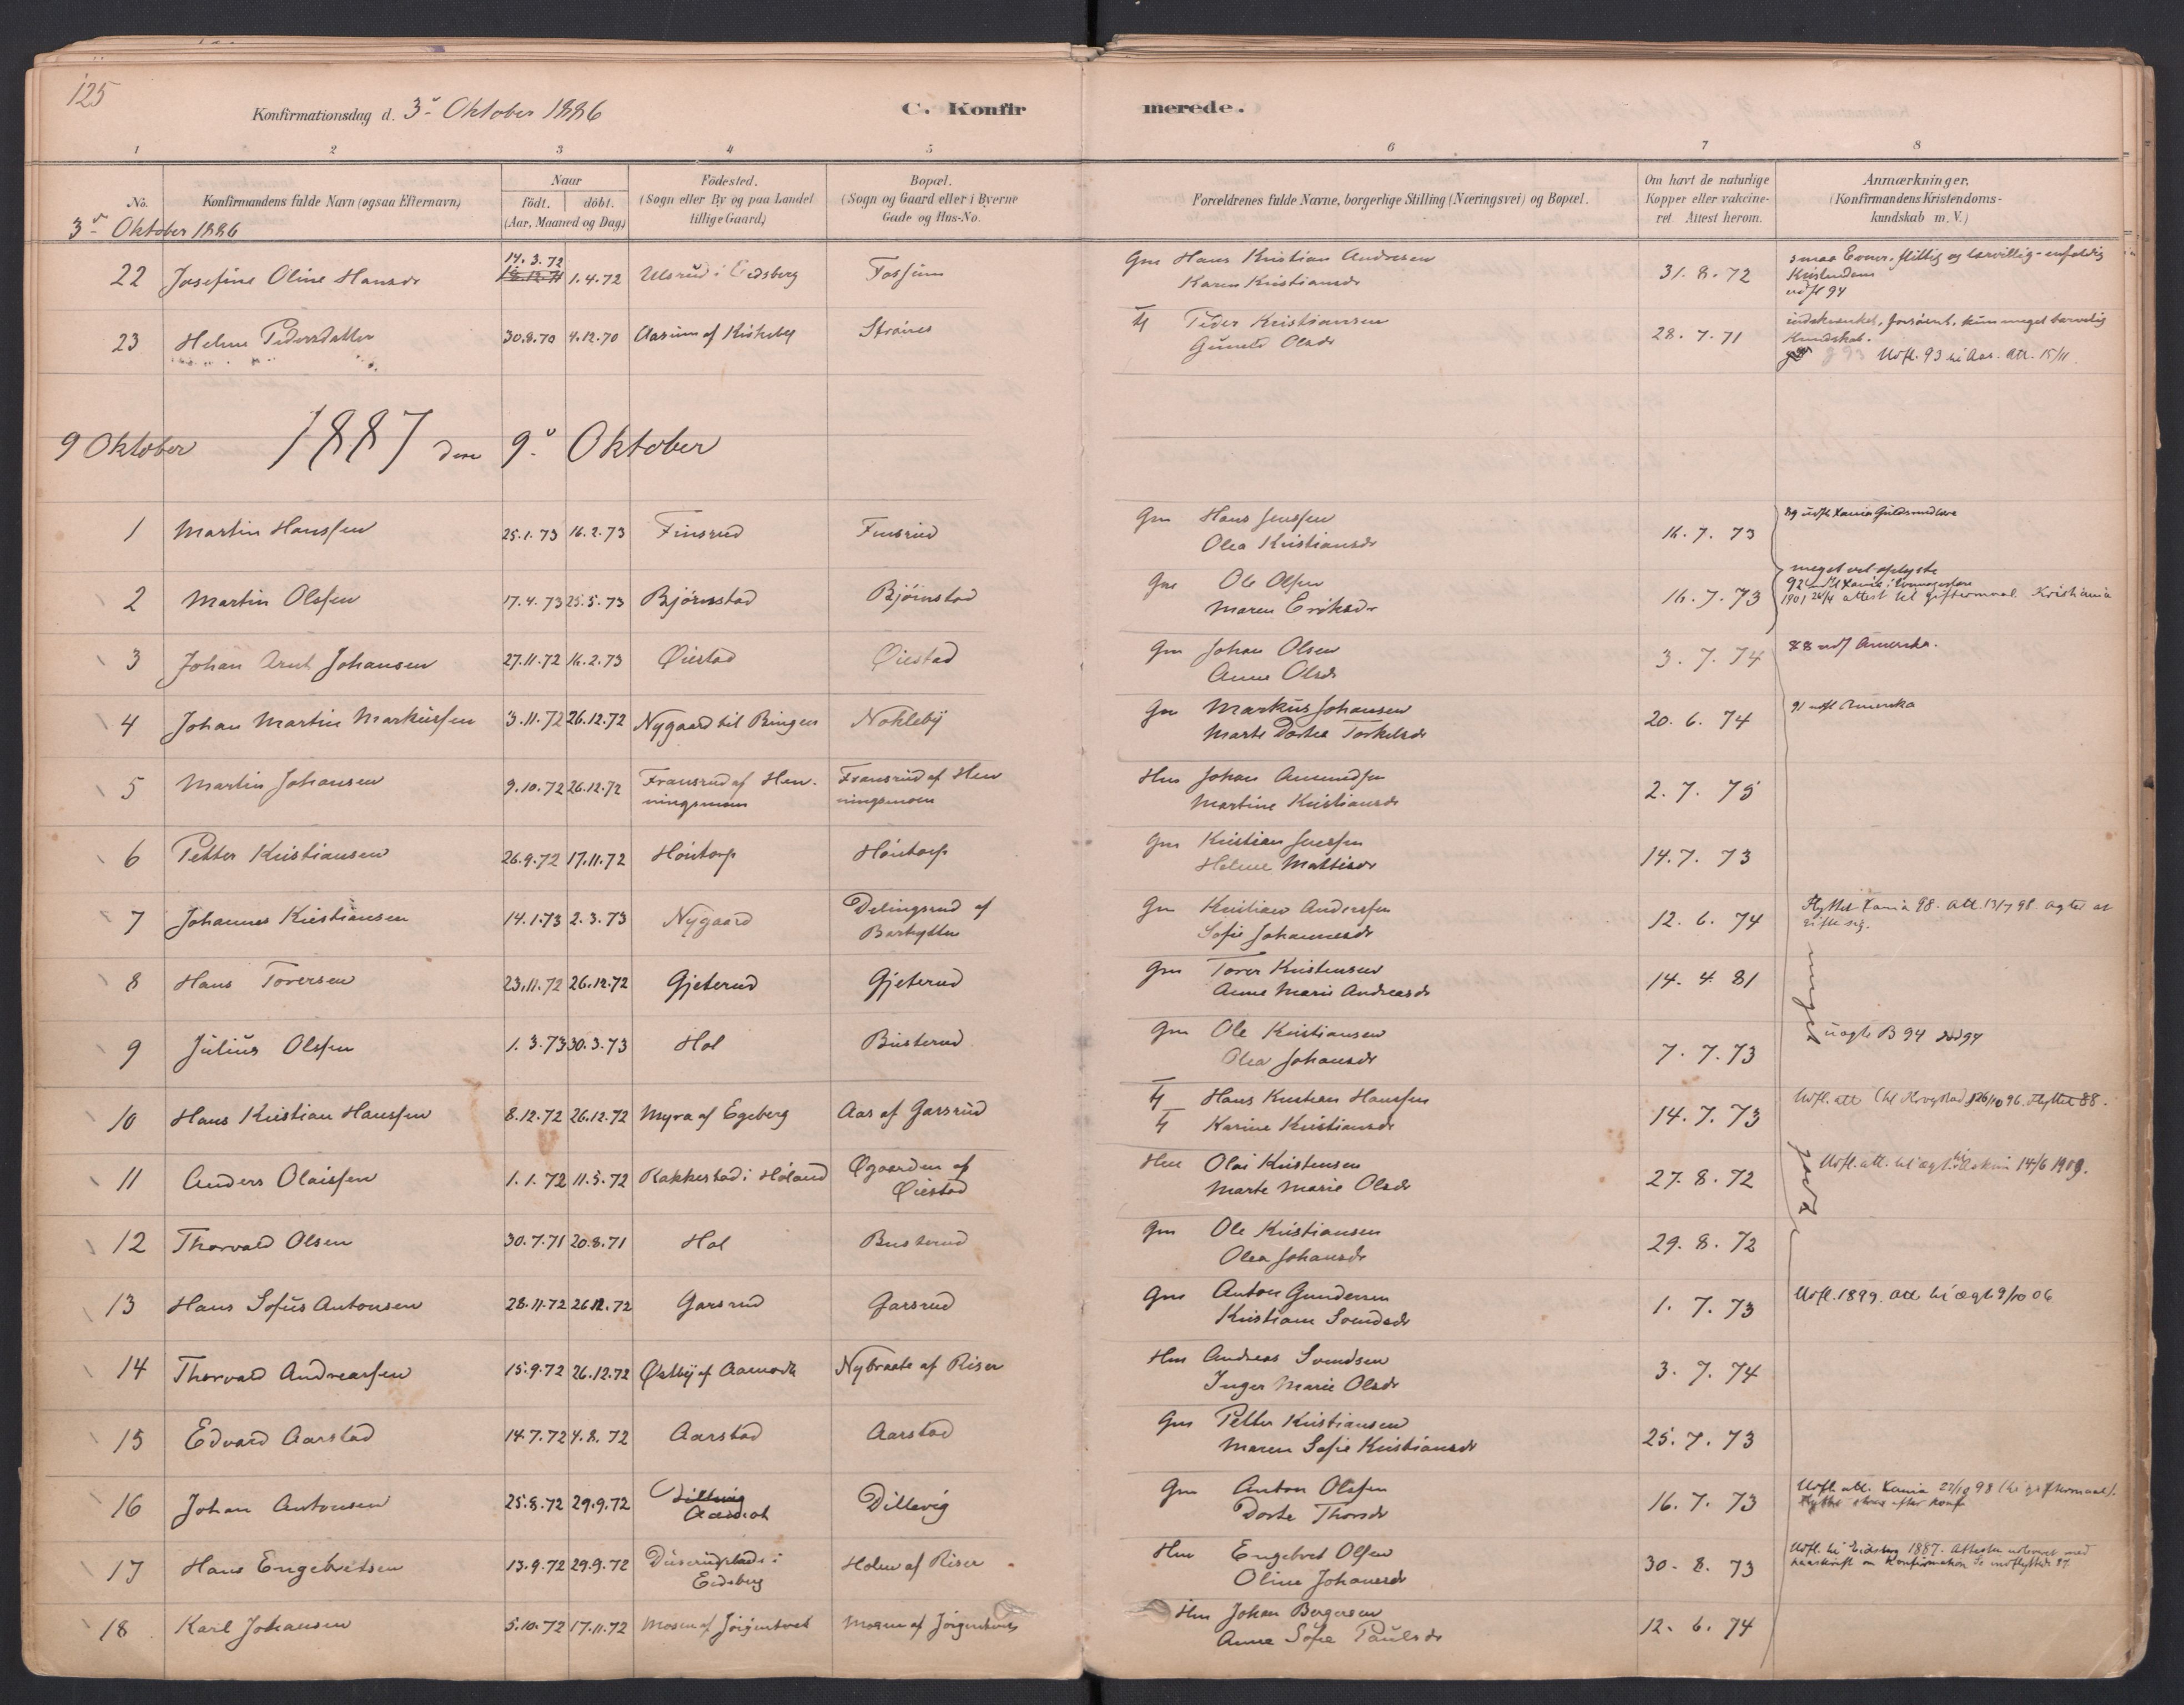 125
Konfirmationsdag d. 3die Oktober 1886
C. Konfirmerede.
1 2 3 4 5 6 7 8
No.
Konfirmandens fulde Navn (ogsaa Efternavn)
Naar
Födt. döbt.
(Aar, Maaned og Dag)
Födested.
(Sogn eller By og paa Landet
tillige Gaard)
Bopæl.
(Sogn og Gaard eller i Byerne
Gade og Hus-No.
Forældrenes fulde Navne, borgerlige Stilling (Næringsvei) og Bopæl.
Om havt de naturlige
Kopper eller vaccine-
ret. Attest herom.
Anmærkninger,
(Konfirmandens Kristendoms-
kundskab m. V.)
3 Oktober 1886
22 Josefine Oline Hansdr 14.3.72 1.4.72 Ulsrud i Eidsberg Fossum Gm Hans Kristian Andresen 31.8.72 smaa Evner, flittig og lærvillig - enfoldig
Karen Kristiansdr Kristendom
udfl 94
23 Helene Pedersdatter 30.8.70 4.12.70 Aasum af Kirkeby Strönes Tj Peder Kristiansen 28.7.71
Gunild Olsdr Kundskab.
Udfl. 93 Att. 15/11
9 Oktober 1887 den 9de Oktober
1 Martin Hanssen 25.1.73 16.2.73 Finsrud Finsrud Gm Hans Jenssen 16.7.73 89 udfl Xania Guldsmedlære
Olea Kristiansdr
2 Martin Olsen 17.4.73 25.5.73 Björnstad Björnstad Gm Ole Olsen 16.7.73 meget vel oplyste
Maren Eriksdr 1901 24/4 attest til giftermaal Kristiania
3 Johan Arnt Johansen 27.11.72 16.2.73 Øiestad Øiestad Gm Johan Olsen 3.7.74 88 udf Amerika.
Anne Olsdr
4 Johan Martin Markussen 3.11.72 26.12.72 Nygaard til Ringen Nokleby Gm Markus Johansen 20.6.74 91 udfl Amerika
Marte Dortea Torkelsdr
5 Martin Johansen 9.10.72 26.12.72 Fransrud af Hen- Fransrud af Hen Hm Johan Amundsen 2.7.75
ningsmoen ningsmoen Martine Kristiansdr
6 Petter Kristiansen 26.9.72 17.11.72 Höntorp Höntorp Gm Kristian Jenssen 14.7.73
Helene Mattisdr
7 Johannes Kristiansen 14.1.73 2.3.73 Nygaard Delingsrud af Gm Kristian Anderssen 12.6.74 Flyttet Xania 98. Att. 13/7 98. agter at
Barhytten Sofie Johannesdr gifte sig.
8 Hans Toversen 23.11.72 26.12.72 Gjeterud Gjeterud Gm Tover Kristensen 14.4.81 meget
Anne Marie Andreasdr
9 Julius Olsen 1.3.73 30.3.73 Hol Busterud Gm Ole Kristiansen 7.7.73 uægte B 94 død 94
Olea Johansdr
10 Hans Kristian Hanssen 8.12.72 26.12.72 Myra af Egeberg Aas af Garsrud Tj Hans Kristian Hanssen 14.7.73 Udfl. att
Tj Karine Kristiansdr
11 Anders Olaissen 1.1.72 11.5.72 Rakkestad i Höland Øgaarden af Hm Olai Kristensen 27.8.72 godt
Øiestad Marte Marie Olsdr
12 Thorvald Olsen 30.7.71 20.8.71 Hol Busterud Gm Ole Kristiansen 29.8.72
Olea Johansdr
13 Hans Sofus Antonsen 28.11.72 26.12.72 Garsrud Garsrud Gm Anton Gundersen 1.7.73 Udfl. 1899. att til ægt 9/10 06
Kristiane Svendsdr
14 Thorvald Andreassen 15.9.72 26.12.72 Østby af Aamodt Nybraate af Riser Hm Andreas Svendsen 3.7.74
Inger Marie Olsdr
15 Edvard Aarstad 14.7.72 4.8.72 Aarstad Aarstad Gm Petter Kristiansen 25.7.73
Maren Sofie Kristiansdr
16 Johan Antonsen 25.8.72 29.9.72 Dillevig Dillevig Gm Anton Olsen 16.7.73 Udfl. att. Xania 27/10 98 (til giftermaal).
Dorte Thorsdr Flyttet strax efter Konf
17 Hans Engebretsen 13.9.72 29.9.72 Duserudstad i Holm af Riser Hm Engebret Olsen 30.8.73 Udfl. til Eidsberg 1887. Attesten udleveret med
Eidsberg Oline Johansdr paaskrift om Konfirmation. Se indflyttede 87.
18 Karl Johansen 5.10.72 17.11.72 Mosen af Jörgentvedt Mosen af Jörgentvedt Hm Johan Bergersen 12.6.74
Anne Sofie Paulsdr